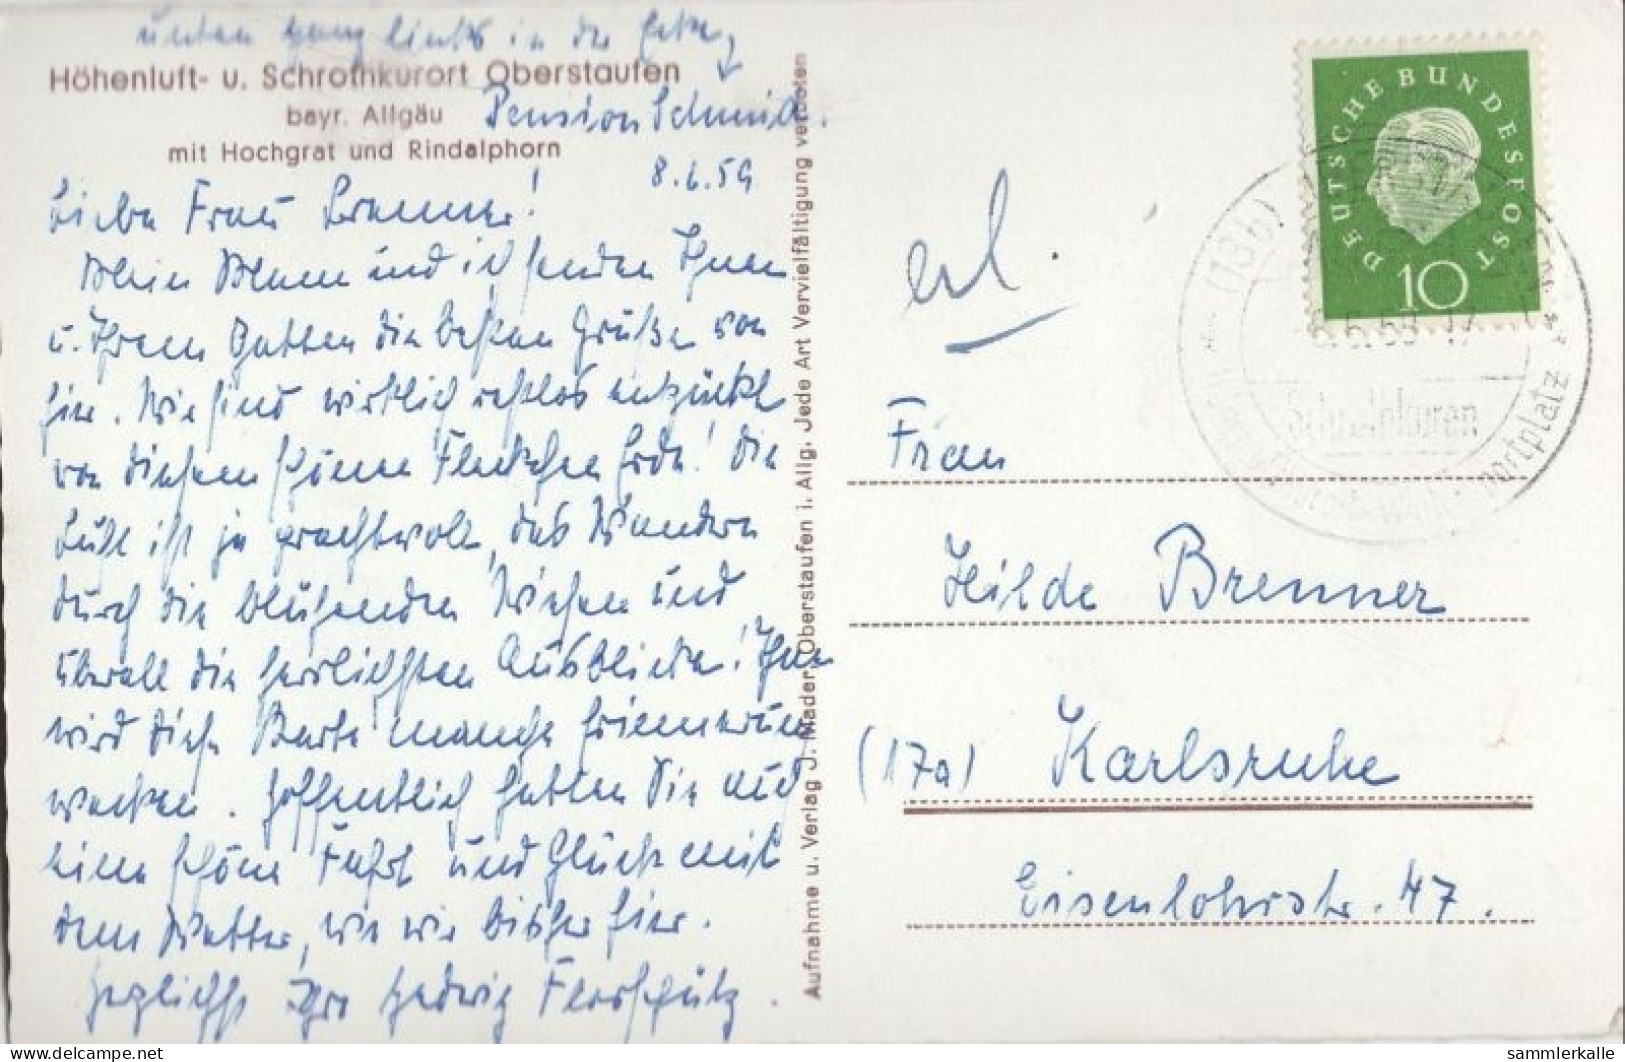 unten ganz links in der Ecke,
Höhenluft- u. Schrothkurort Oberstaufen
bayr. Allgäu
Pension Schmid.
mit Hochgrat und Rindalphorn
8.6.59
Liebe Frau Brenner!
Mein Mann und ich senden Ihnen
u. Ihrem Gatten die besten Grüße von
hier. Wir sind wirklich restlos entzückt
von diesem schönen Fleckchen Erde! Die
Luft ist ja prachtvoll, das Wandern
durch die blühenden Wiesen und
überall die herrlichsten Ausblicke! Ihnen
wird diese Karte manche Erinnerung
wecken. Hoffentlich hatten Sie auch
eine schöne Fahrt und Glück mit
dem Wetter, wie wir bisher hier.
Herzlichst Ihre Hedwig
Aufnahme u. Verlag J. Mader, Oberstaufen i. Allg. Jede Art Vervielfältigung verboten
DEUTSCHE BUNDESPOST
10
(13b)
Schrothkuren
erl.
Frau
Hilde Brenner
(17a) Karlsruhe
Eisenlohrstr. 47.
delcampe.net
sammlerkalle